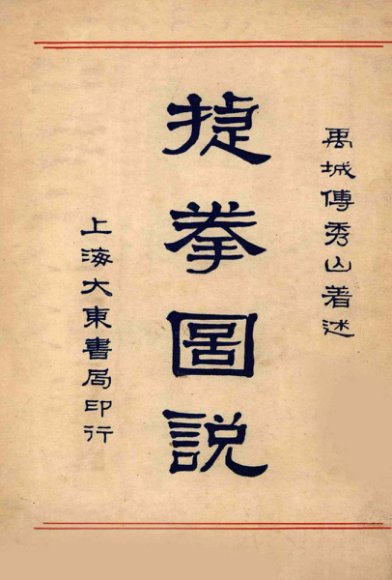 禹城傅秀山著述
捷拳圖説
上海大東書局印行